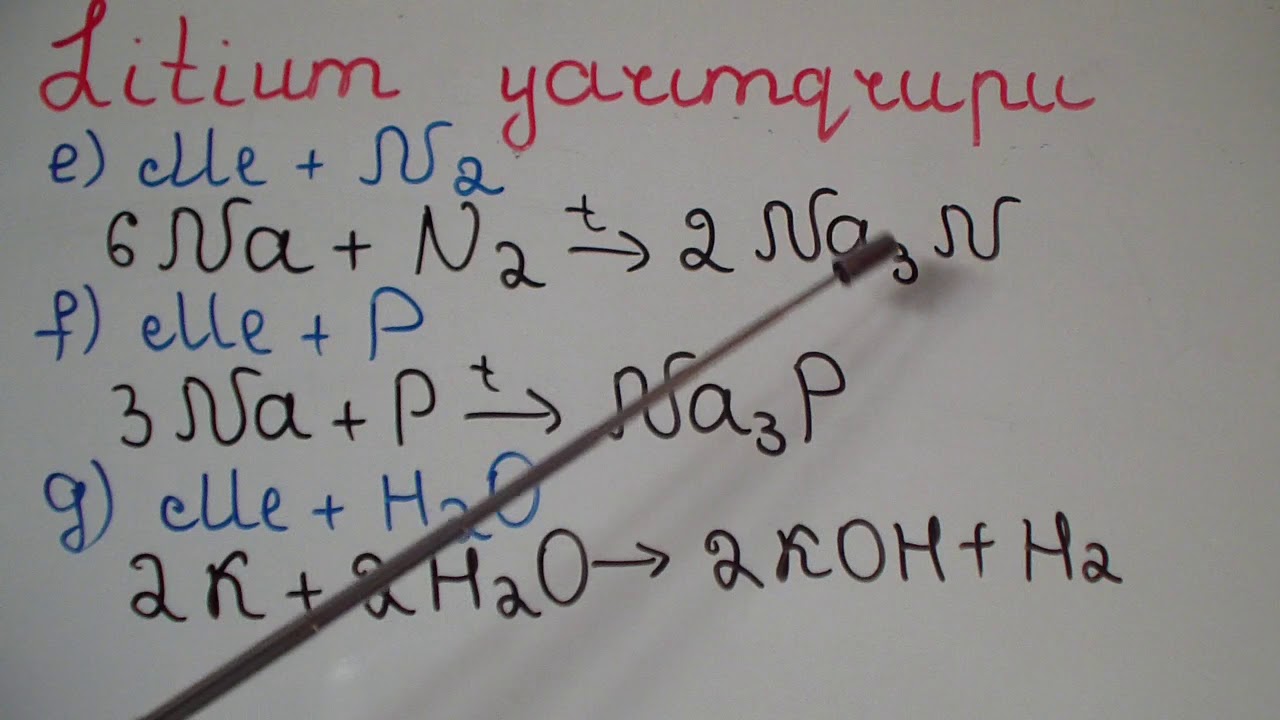 Litium yarımqrupu
e) elle + N₂
6Na + N₂ →ᵗ 2Na₃N
f) elle + P
3Na + P →ᵗ Na₃P
g) elle + H₂O
2K + 2H₂O → 2KOH + H₂